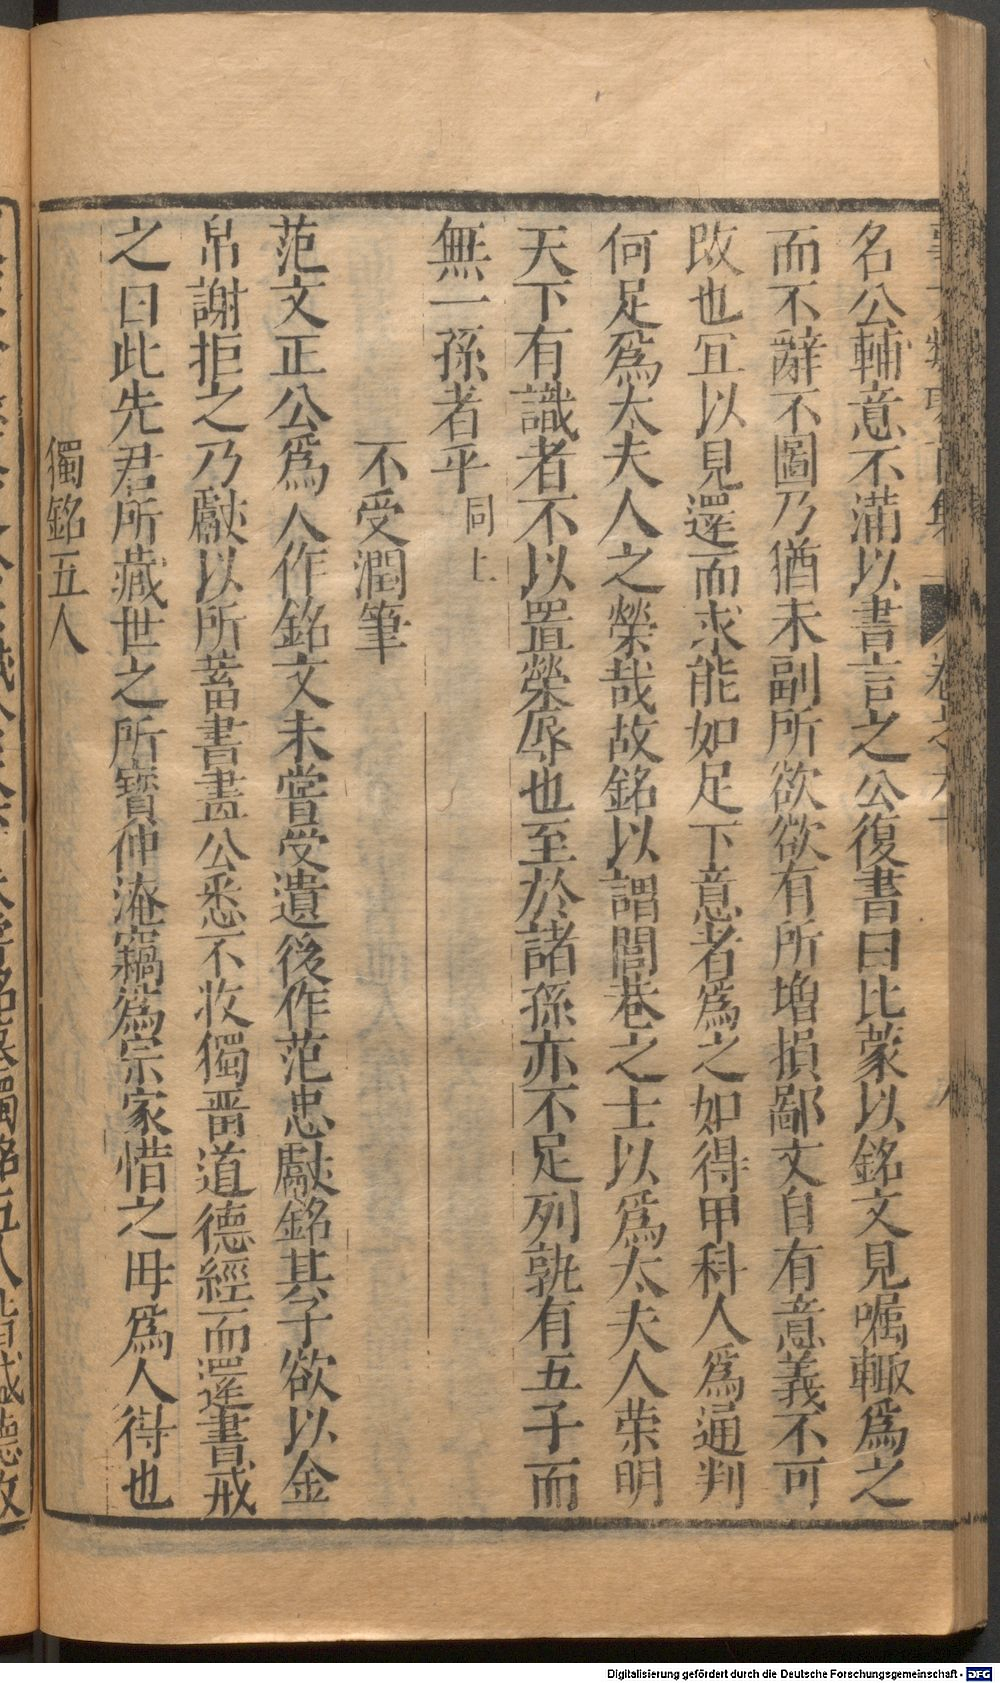 名公輔意不滿以書言之公復書曰比蒙以銘文見囑輙爲之
而不辭不圖乃猶未副所欲欲有所增損鄙文自有意義不可
改也宜以見還而求能如足下意者爲之如得甲科人爲通判
何足爲太夫人之榮哉故銘以謂閭巷之士以爲太夫人荣明
天下有識者不以置榮辱也至於諸孫亦不足列孰有五子而
無一孫者乎 同上
不受潤筆
范文正公爲人作銘文未嘗受遺後作范忠獻銘其子欲以金
帛謝拒之乃獻以所蓄書畫公悉不收獨畱道德經而還書戒
之曰此先君所藏世之所寶仲淹竊爲宗家惜之毋爲人得也
獨銘五人
Digitalisierung gefördert durch die Deutsche Forschungsgemeinschaft - DFG